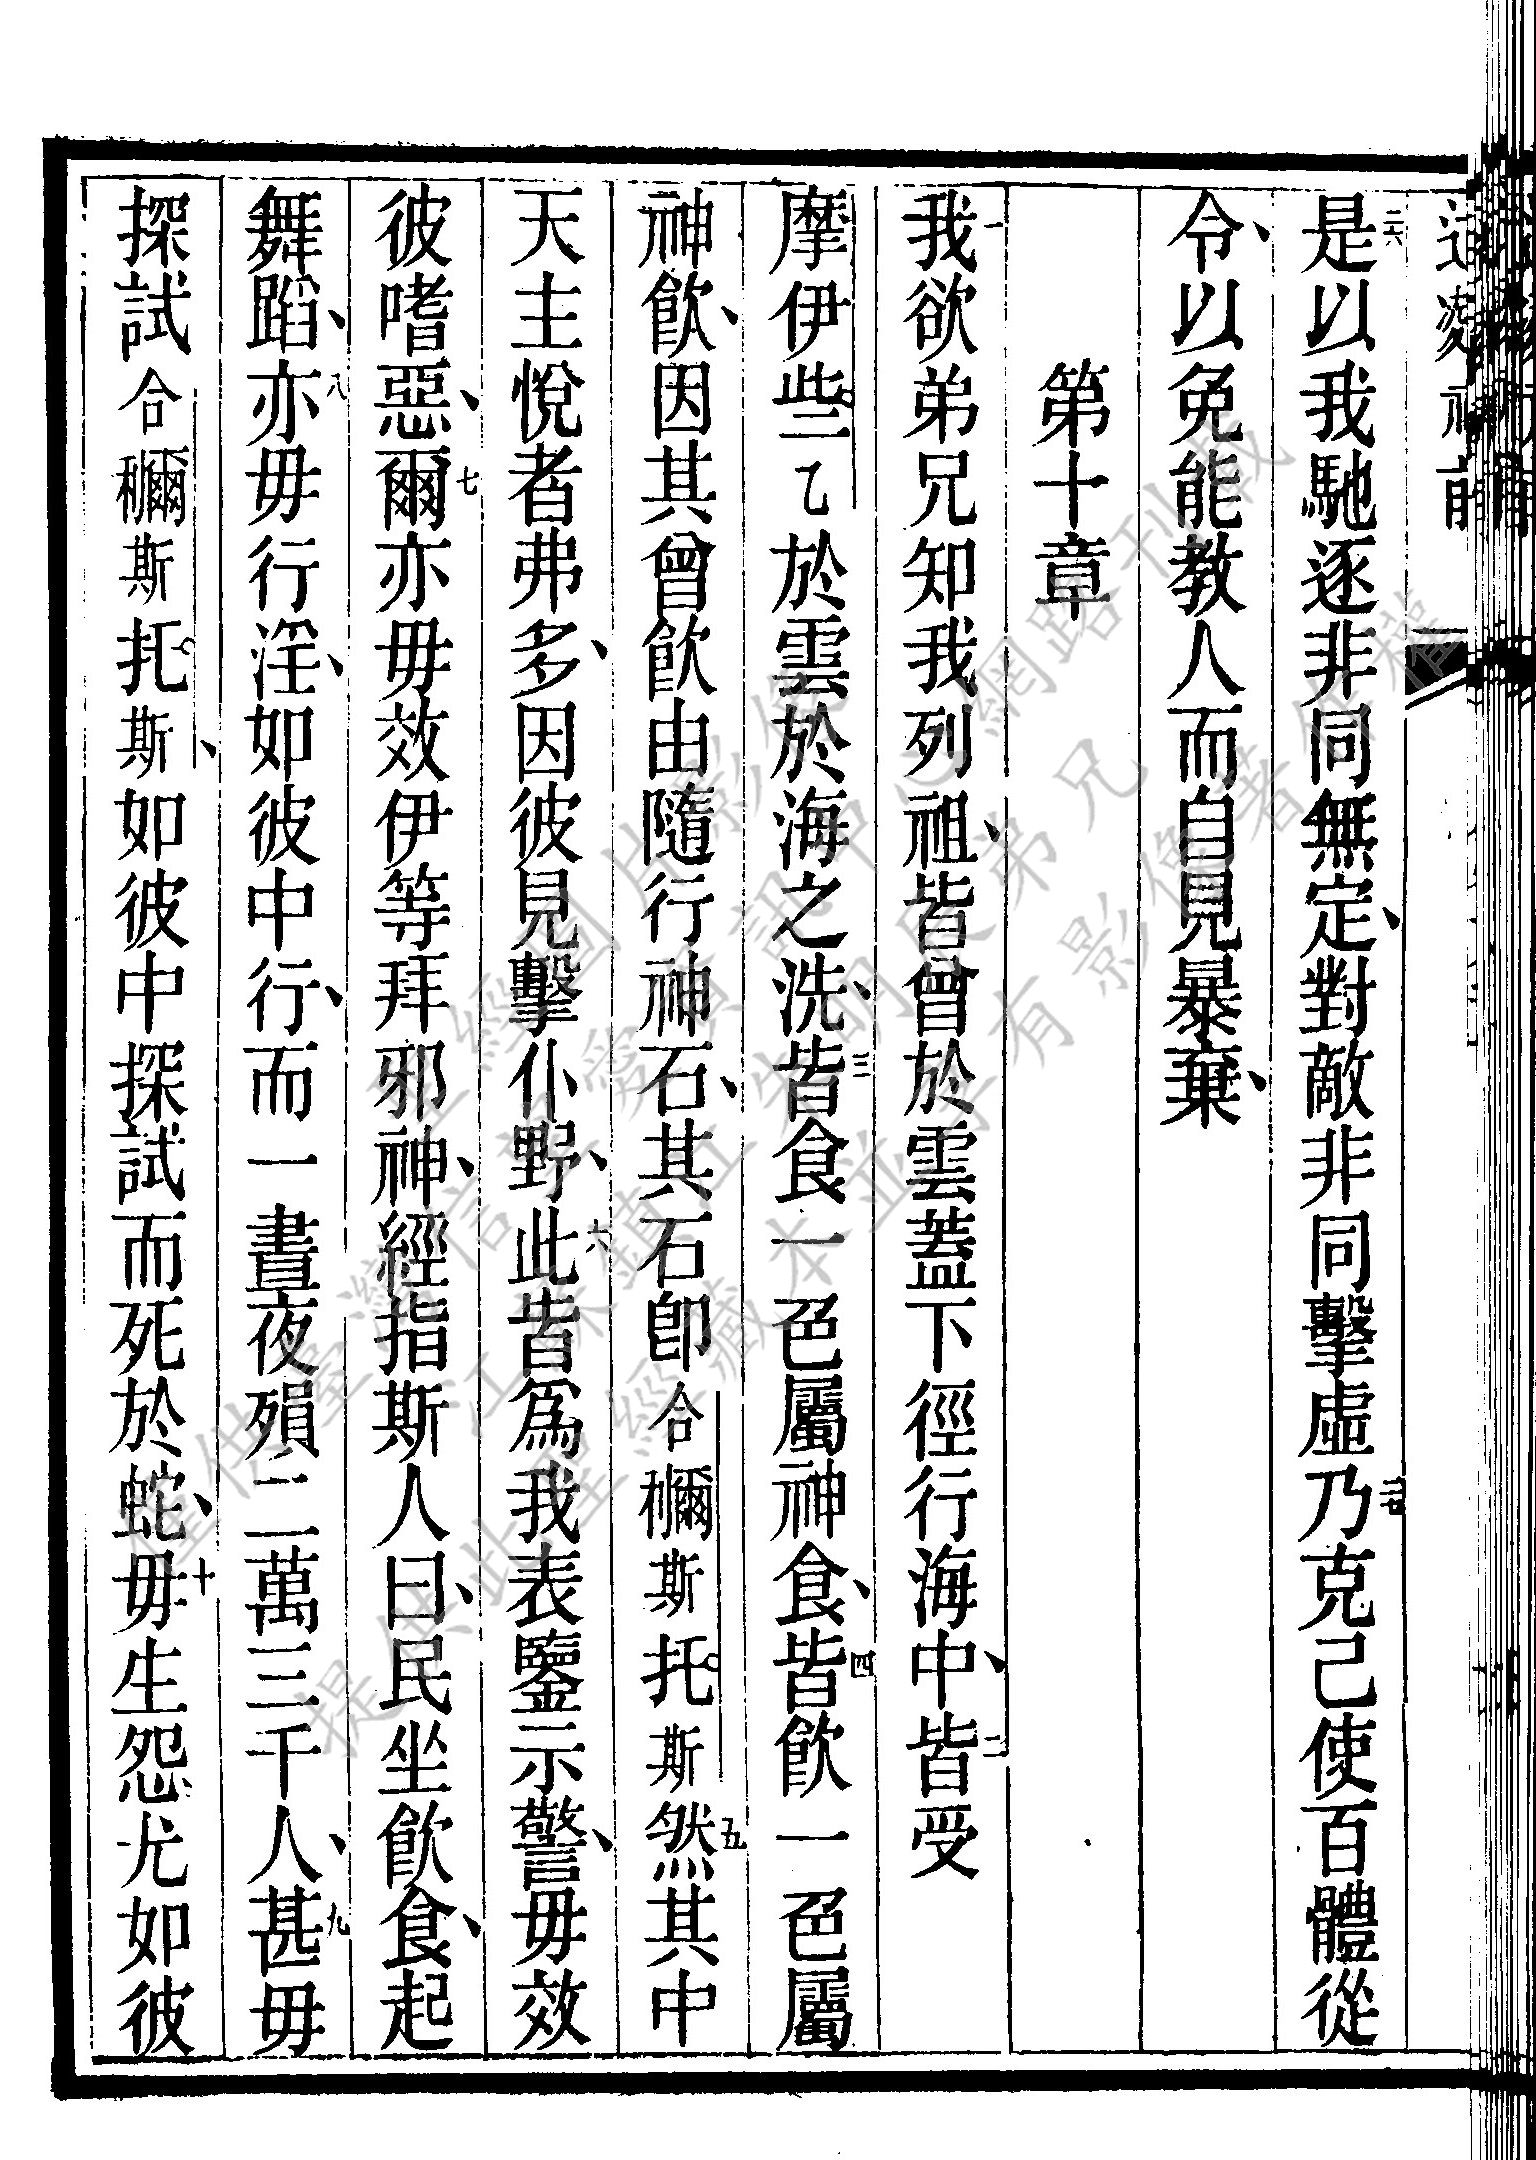 二六是以我馳逐非同無定、對敵非同擊虛二七乃克己使百體從
令、以免能教人而自見暴棄、
第十章
一我欲弟兄知我列祖、皆曾於雲蓋下徑行海中、二皆受
摩伊些二乙於雲於海之洗、三皆食一色屬神食、四皆飲一色屬
神飲、因其曾飲由隨行神石、其石卽合穪斯托斯五然其中
天主悅者弗多、因彼見擊仆野、六此皆爲我表鑒示警、毋效
彼嗜惡、七爾亦毋效伊等拜邪神、經指斯人曰、民坐飲食、起
舞蹈、八亦毋行淫、如彼中行、而一晝夜殞二萬三千人、九甚毋
探試合穪斯托斯、如彼中探試而死於蛇、十毋生怨尤如彼